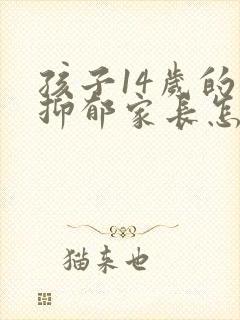 孩子14岁的
抑郁家长怎
猫来也